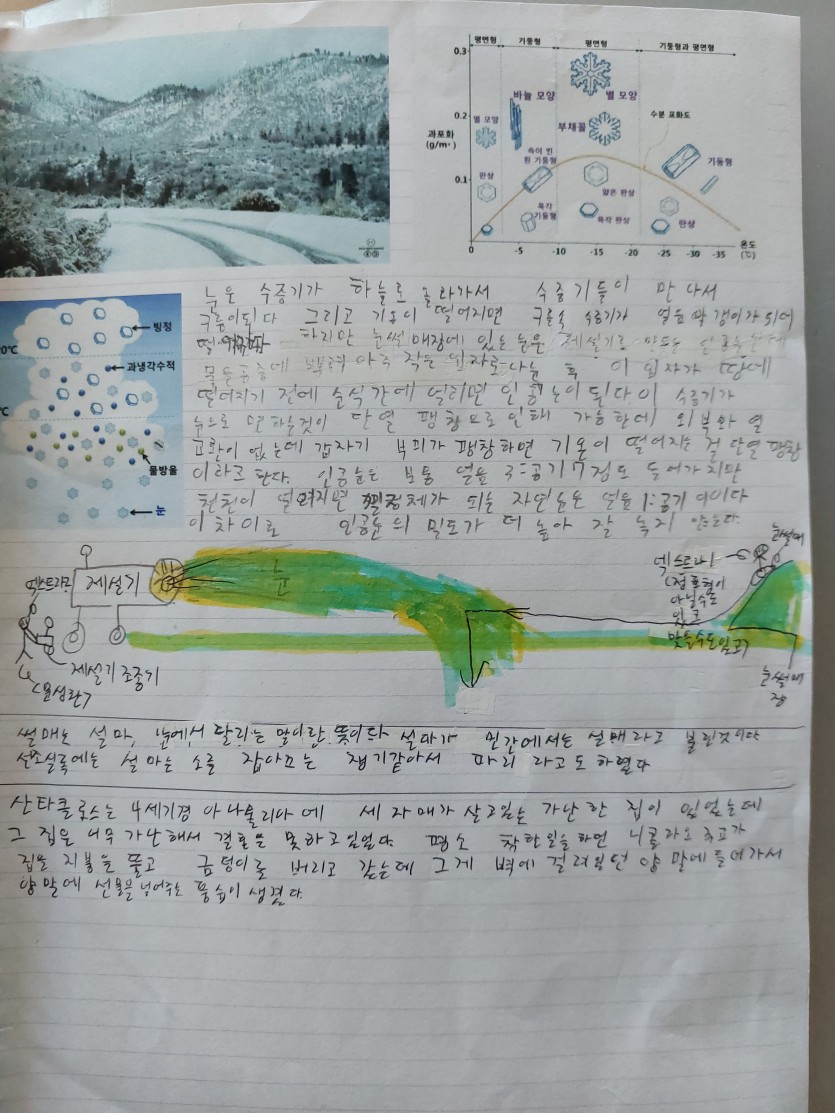 평면형 기둥형 평면형 기둥형과 평면형
0.3
바늘 모양
별 모양
0.2
과포화
(g/m³)
별 모양
부채꼴
수분 포화도
속이 빈
기둥형
판상
기둥형
0.1
얇은 판상
육각
기둥형
육각 판상
판상
0 -5 -10 -15 -20 -25 -30 -35 온도
(℃)
빙정
0℃
과냉각수적
℃
물방울
눈
눈은 수증기가 하늘로 올라가서 수증기들이 만나서
구름이되다 그리고 기온이 떨어지면 구름속 수증기가 얼음 알갱이가 되어
하지만 눈썰매장에 있는 눈은 제설기로 만드는
아주 작은 입자로 나눈 후 이 입자가 땅에
떨어지기 전에 순식간에 얼리면 인공눈이 된다 이 수증기가
눈으로 변하는것이 단열 팽창으로 인해 가능한데 외부와 열
교환이 없는데 갑자기 부피가 팽창하면 기온이 떨어지는 걸 단열 팽창
이라고 한다. 인공눈은 보통 얼음 3:공기 7정도 들어가지만
천천히 얼 결정체가 되는 자연눈은 얼음 1:공기 9이다
이 차이로 인공눈의 밀도가 더 높아 잘 녹지 않는다.
엑스트라2
제설기
눈
엑스트라1
눈썰매
아닐수도
있고
맞을수도있고>
제설기 조종기
눈썰매
장
썰매는 설마, 눈에서 달리는 말이란 뜻이다 설마가 민간에서는 설매라고 불린것이다
선조실록에는 설마는 소를 잡아끄는 쟁기같아서 파리 라고도 하였다
산타클로스는 4세기경 아나톨리아에 세 자매가 살고있는 가난한 집이 있었는데
그 집은 너무 가난해서 결혼을 못하고있었다. 평소 착한일을하면 니콜라오 주교가
집을 지붕을 뚫고 금덩이를 버리고 갔는데 그게 벽에 걸려있던 양말에 들어가서
양말에 선물을 넣어주는 풍습이 생겼다.